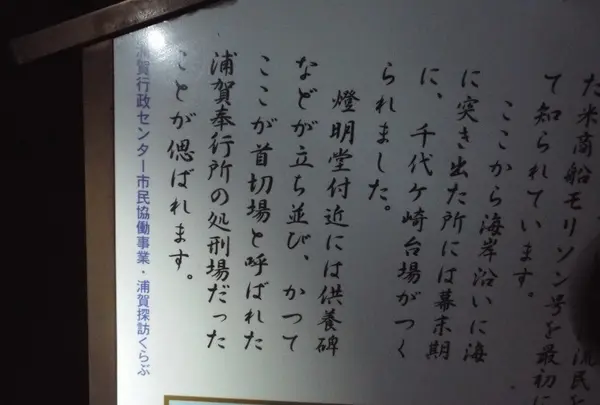 流民を
た米商船モリソン号を最初に
て知られています。
ここから海岸沿いに海
に突き出た所には幕末期
に、千代ケ崎台場がつく
られました。
燈明堂付近には供養碑
などが立ち並び、かつて
ここが首切場と呼ばれた
浦賀奉行所の処刑場だった
ことが偲ばれます。
浦賀行政センター市民協働事業・浦賀探訪くらぶ